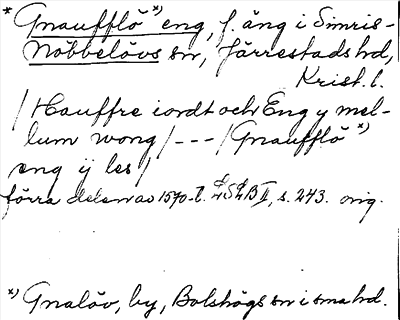 * Gnaufflö *) eng, f. äng i Simris-
Nöbbelövs sn, Järrestads hd,
Krist. l.
/Hauffre iordt och Eng y mel-
lum wong/ --- /Gnaufflö *)
eng ÿ les/
förra delen av 1570-t. LSLB II, s. 243. orig.
*) Gnalöv, by, Bolshögs sn i sma hd.